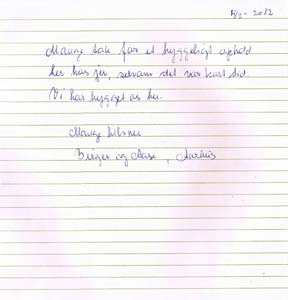 14/7 - 2012
Mange tak for et hyggeligt ophold
her hos jer, selvom det var kort tid.
Vi har hygget os her.
Mange hilsner
Birger og Aase, Aarhus